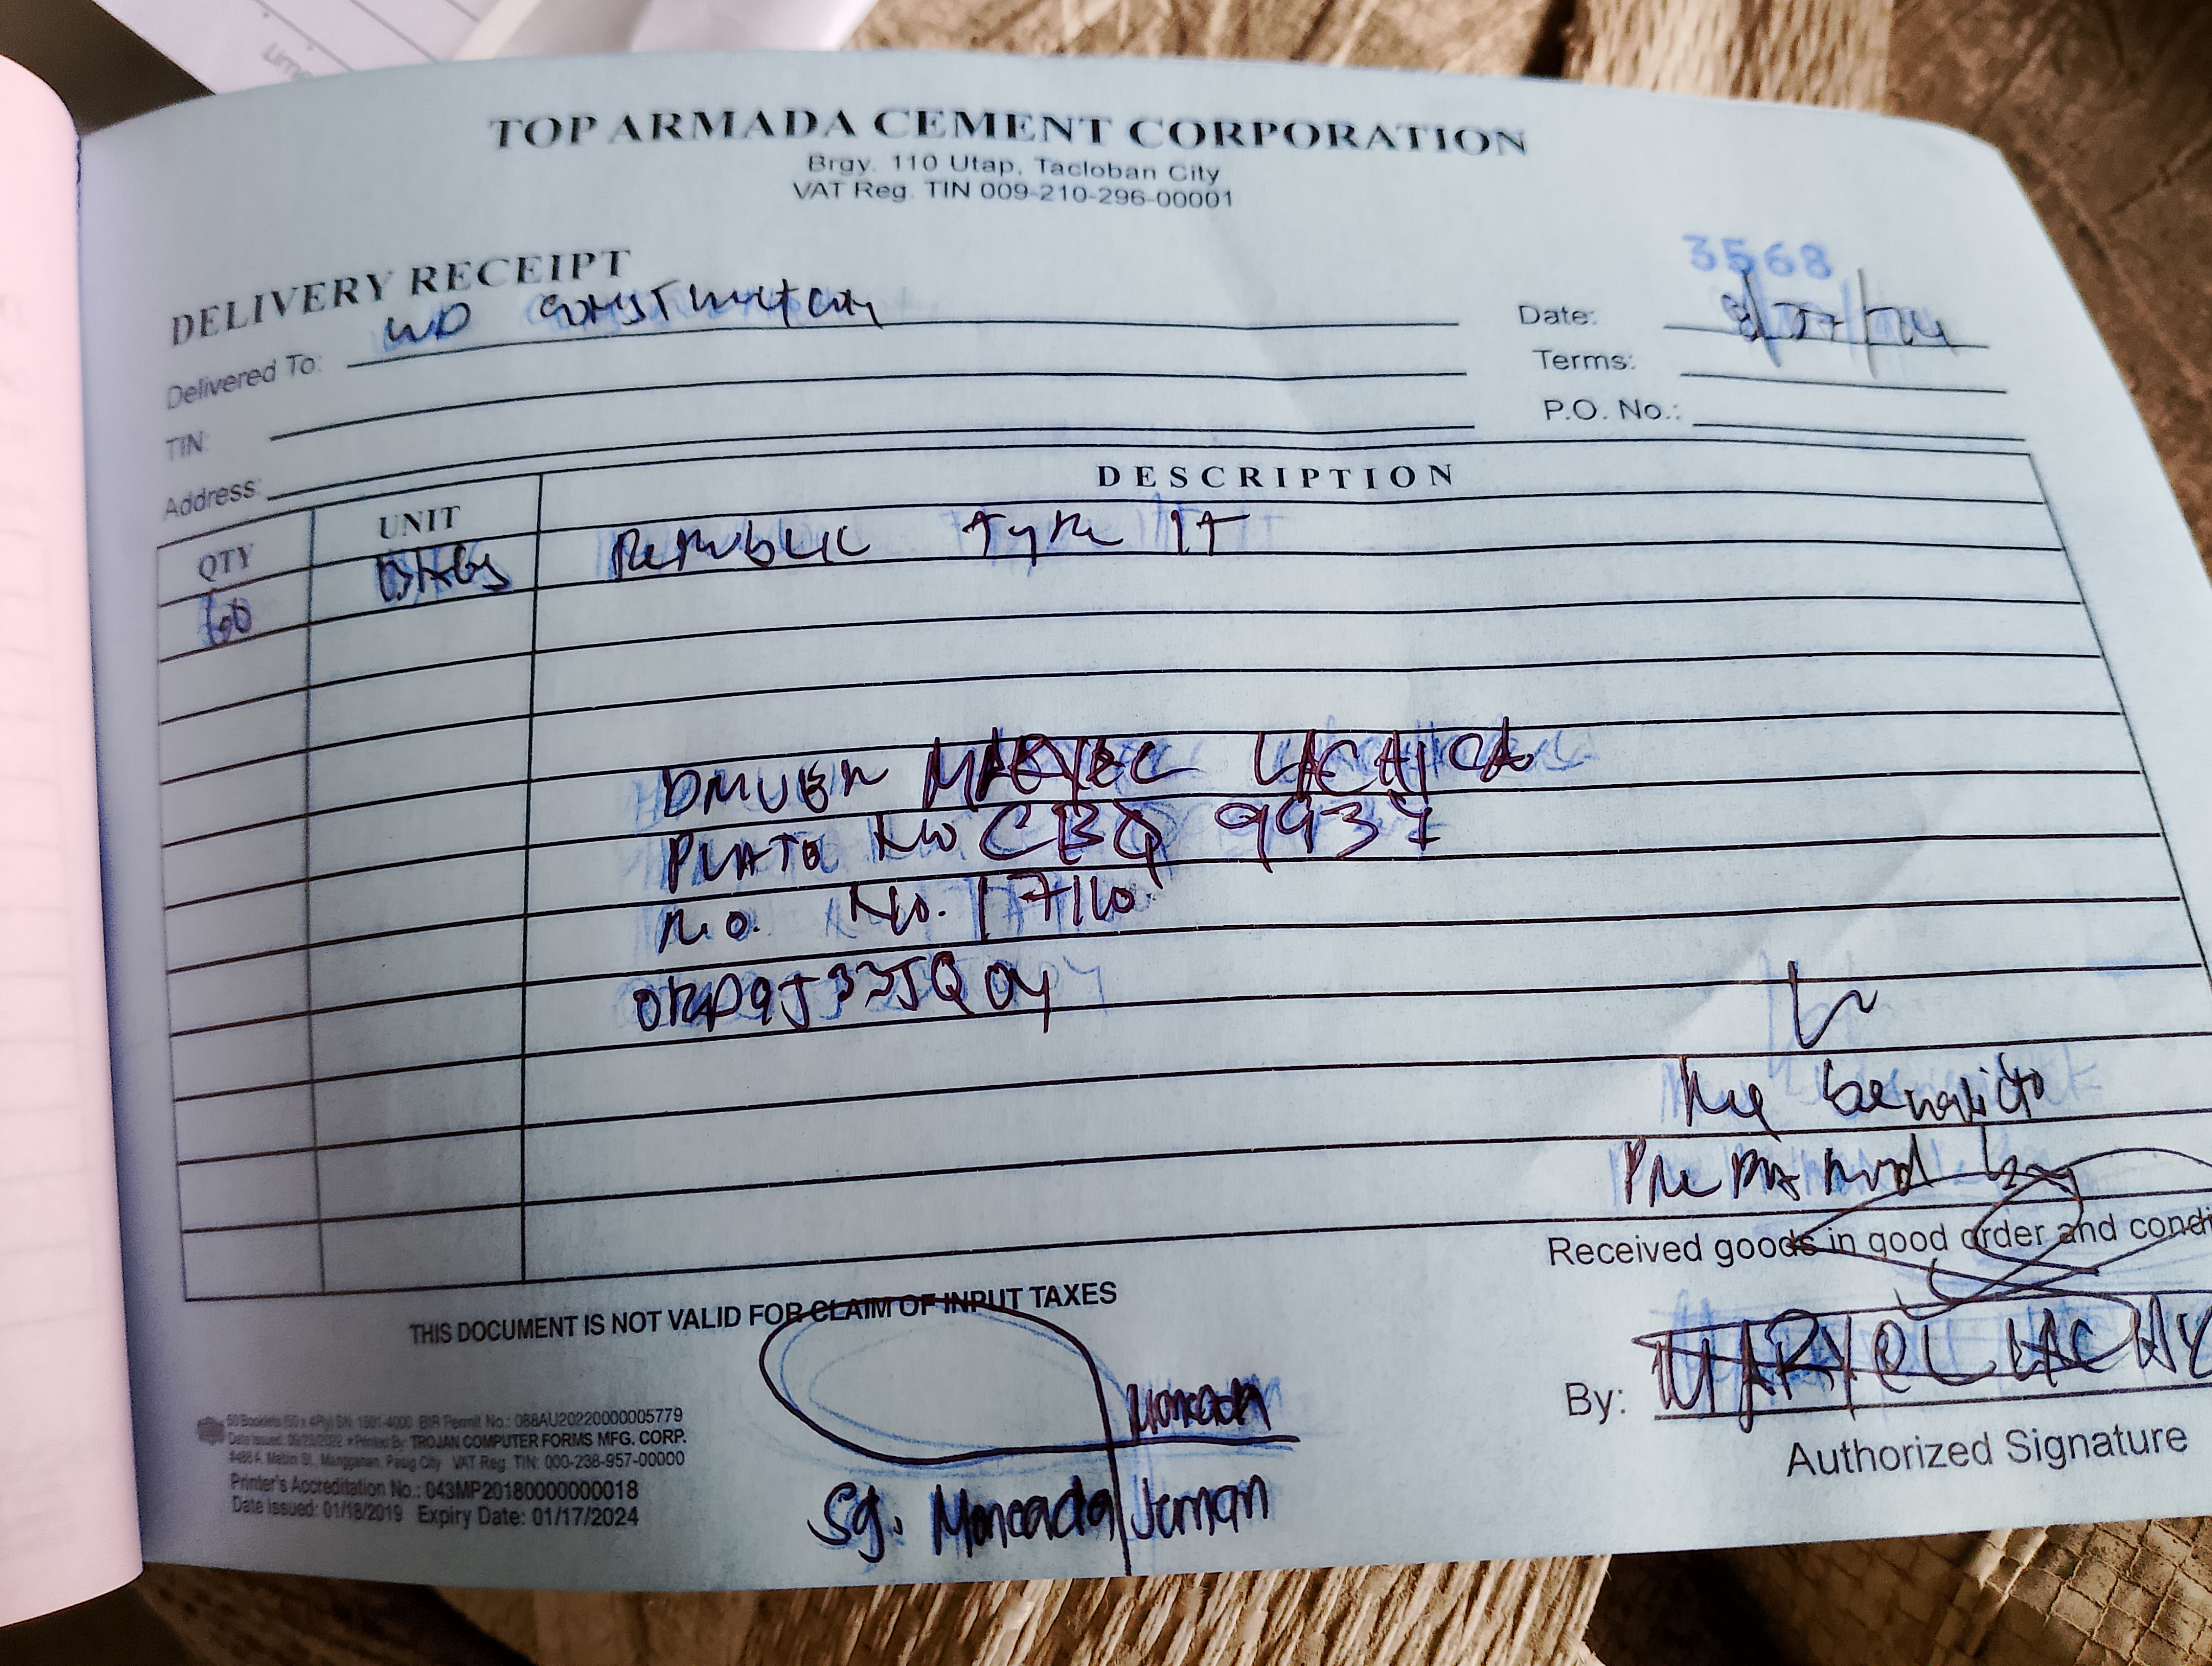 TOP ARMADA CEMENT CORPORATION
Brgy. 110 Utap, Tacloban City
VAT Reg. TIN 009-210-296-00001
DELIVERY RECEIPT
3568
Delivered To: WD Construction
Date: 8/27/24
TIN:
Terms:
Address:
P.O. No.:
QTY UNIT DESCRIPTION
60 BAGS Republic Type 1T
DRIVER MARYEL LACHICA
PLATE No. CBQ 9937
R.O. No. 17116
Benedicto
Prepared by
Received goods in good order and condi
THIS DOCUMENT IS NOT VALID FOR CLAIM OF INPUT TAXES
By: MARYEL LACHIC
Authorized Signature
Moncada
Sg. Moncada Jeman
50 Booklets (50 x 4Ply) SN: 1501-4000 BIR Permit No.: 088AU20220000005779
Date Issued: 09/23/2022 Printed By: TROJAN COMPUTER FORMS MFG. CORP.
Manggahan, Pasig City VAT Reg. TIN: 000-238-957-00000
Printer's Accreditation No.: 043MP20180000000018
Date Issued: 01/18/2019 Expiry Date: 01/17/2024